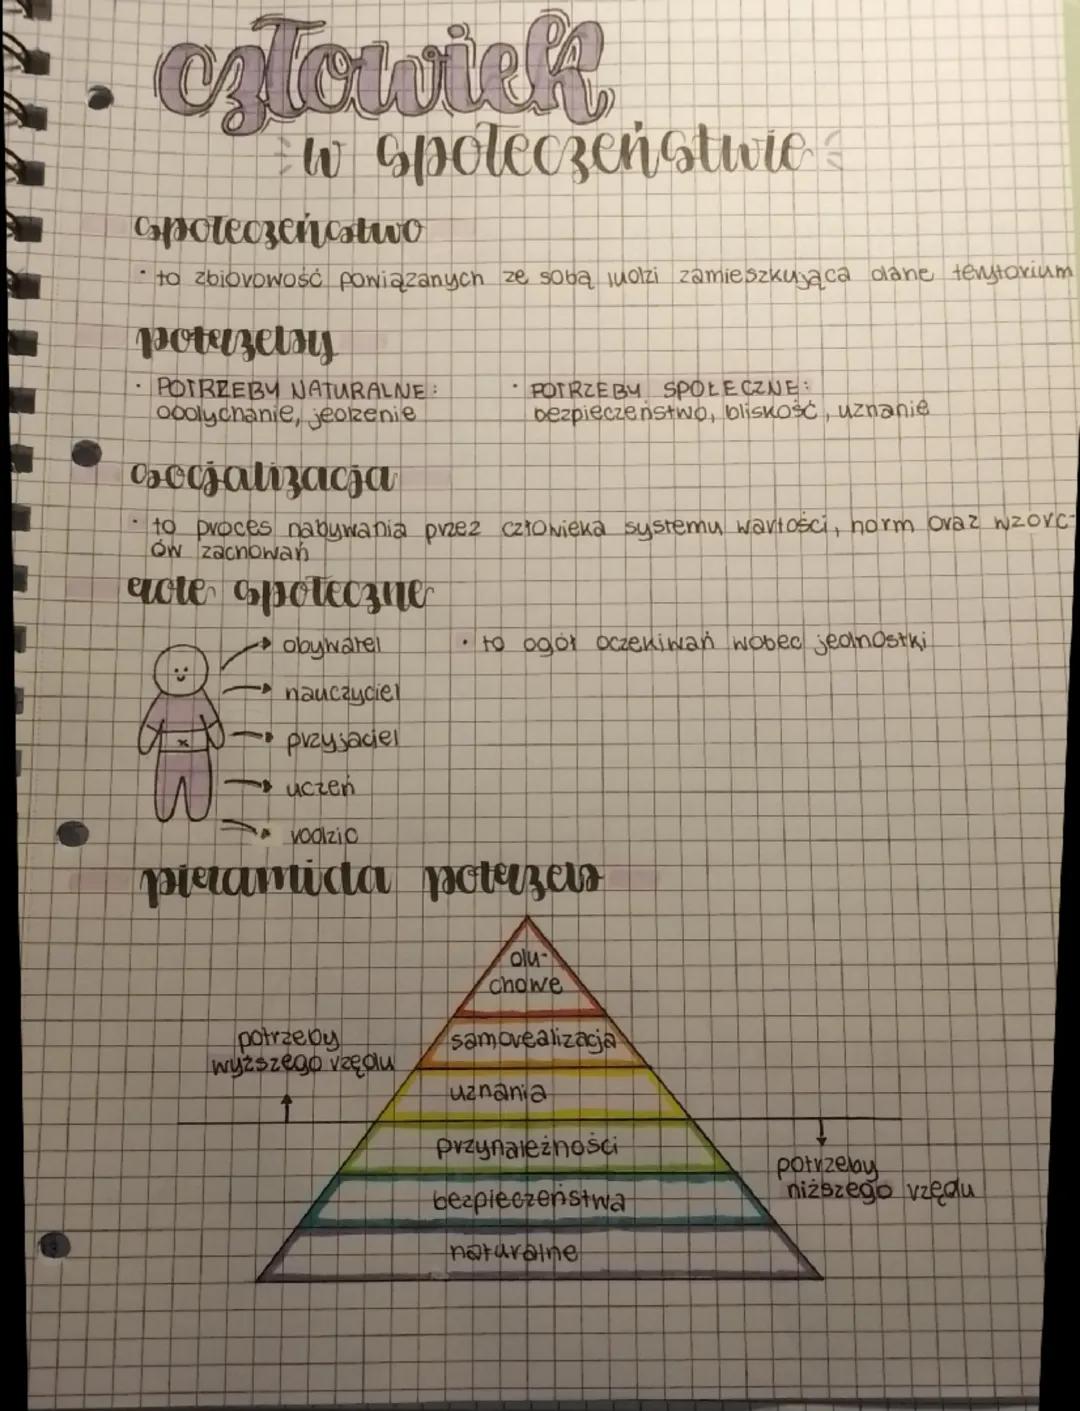 człowiek
w społeczeństwie
społeczeństwo
• to zbiorowość powiązanych ze sobą ludzi zamieszkująca dane terytorium
potrzeby
• POTRZEBY NATURALNE:
oddychanie, jedzenie
• POTRZEBY SPOŁECZNE:
bezpieczeństwo, bliskość, uznanie
socjalizacja
• to proces nabywania przez człowieka systemu wartości, norm oraz wzorc-
ów zachowań
role społeczne
• to ogół oczekiwań wobec jednostki
obywatel
nauczyciel
przyjaciel
uczeń
rodzic
piramida potrzeb
du-
chowe
samorealizacja
uznania
przynależności
bezpieczeństwa
naturalne
potrzeby
wyższego rzędu
potrzeby
niższego rzędu